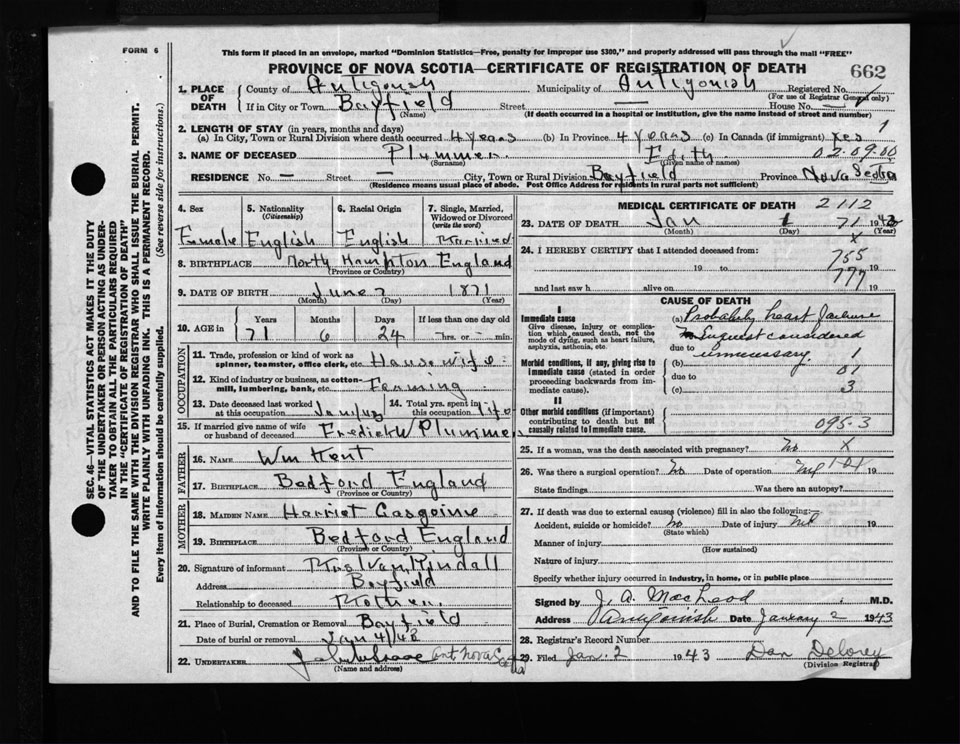 FORM 6
This form if placed in an envelope, marked "Dominion Statistics—Free, penalty for improper use $300," and properly addressed will pass through the mail "FREE"
PROVINCE OF NOVA SCOTIA—CERTIFICATE OF REGISTRATION OF DEATH 662
1. PLACE OF DEATH
County of Antigonish Municipality of Antigonish Registered No.
(For use of Registrar General only)
If in City or Town Bayfield Street — House No. —
(Name) (If death occurred in a hospital or institution, give the name instead of street and number)
2. LENGTH OF STAY (in years, months and days)
(a) In City, Town or Rural Division where death occurred 4 years (b) In Province 4 years (c) In Canada (if immigrant) yes 1
3. NAME OF DECEASED Plummer Edith 02.09.00
(Surname) (Given name or names)
RESIDENCE No. — Street — City, Town or Rural Division Bayfield Province Nova Scotia
(Residence means usual place of abode. Post Office Address for residents in rural parts not sufficient)
4. Sex
Female
5. Nationality
(Citizenship)
English
6. Racial Origin
English
7. Single, Married, Widowed or Divorced
(write the word)
Married
8. BIRTHPLACE North Hampton England
(Province or Country)
9. DATE OF BIRTH June 7 1871
(Month) (Day) (Year)
10. AGE in
Years Months Days If less than one day old
71 6 24 hrs. or min.
OCCUPATION
11. Trade, profession or kind of work as spinner, teamster, office clerk, etc. Housewife
12. Kind of industry or business, as cotton-mill, lumbering, bank, etc. Farming
13. Date deceased last worked at this occupation
14. Total yrs. spent in this occupation life
15. If married give name of wife or husband of deceased Fredick W Plummer
FATHER
16. NAME Wm Kent
17. BIRTHPLACE Bedford England
(Province or Country)
MOTHER
18. MAIDEN NAME Harriet Gasgoine
19. BIRTHPLACE Bedford England
(Province or Country)
20. Signature of informant Mrs Ivan Rindall
Address Bayfield
Relationship to deceased Mother
21. Place of Burial, Cremation or Removal Bayfield
Date of burial or removal Jan 4/43
22. UNDERTAKER Ant Nova Scotia
(Name and address)
MEDICAL CERTIFICATE OF DEATH 2112
23. DATE OF DEATH Jan 1 71 1943
(Month) (Day) (Year)
24. I HEREBY CERTIFY that I attended deceased from: X
755
19 to 19
777
and last saw h alive on 19
CAUSE OF DEATH
I
Immediate cause
Give disease, injury or complication which caused death, not the mode of dying, such as heart failure, asphyxia, asthenia, etc.
(a) Probably heart failure
Inquest considered
due to unnecessary 1
Morbid conditions, if any, giving rise to immediate cause (stated in order proceeding backwards from immediate cause).
(b) 01
due to
(c) 3
II
Other morbid conditions (if important) contributing to death but not causally related to immediate cause.
095-3
25. If a woman, was the death associated with pregnancy? no X
26. Was there a surgical operation? no Date of operation 19
State findings Was there an autopsy?
27. If death was due to external causes (violence) fill in also the following:—
Accident, suicide or homicide? no Date of injury nil 19
(State which)
Manner of injury
(How sustained)
Nature of injury
Specify whether injury occurred in industry, in home, or in public place
Signed by J. A. MacLeod M.D.
Address Antigonish Date January 2 1943
28. Registrar's Record Number
29. Filed Jan. 2 1943 Dan Delorey
(Division Registrar)
SEC. 46—VITAL STATISTICS ACT MAKES IT THE DUTY
OF THE UNDERTAKER OR PERSON ACTING AS UNDER-
TAKER TO OBTAIN ALL THE PARTICULARS REQUIRED
IN THE "CERTIFICATE OF REGISTRATION OF DEATH"
AND TO FILE THE SAME WITH THE DIVISION REGISTRAR WHO SHALL ISSUE THE BURIAL PERMIT.
WRITE PLAINLY WITH UNFADING INK. THIS IS A PERMANENT RECORD.
Every item of Information should be carefully supplied. (See reverse side for instructions.)